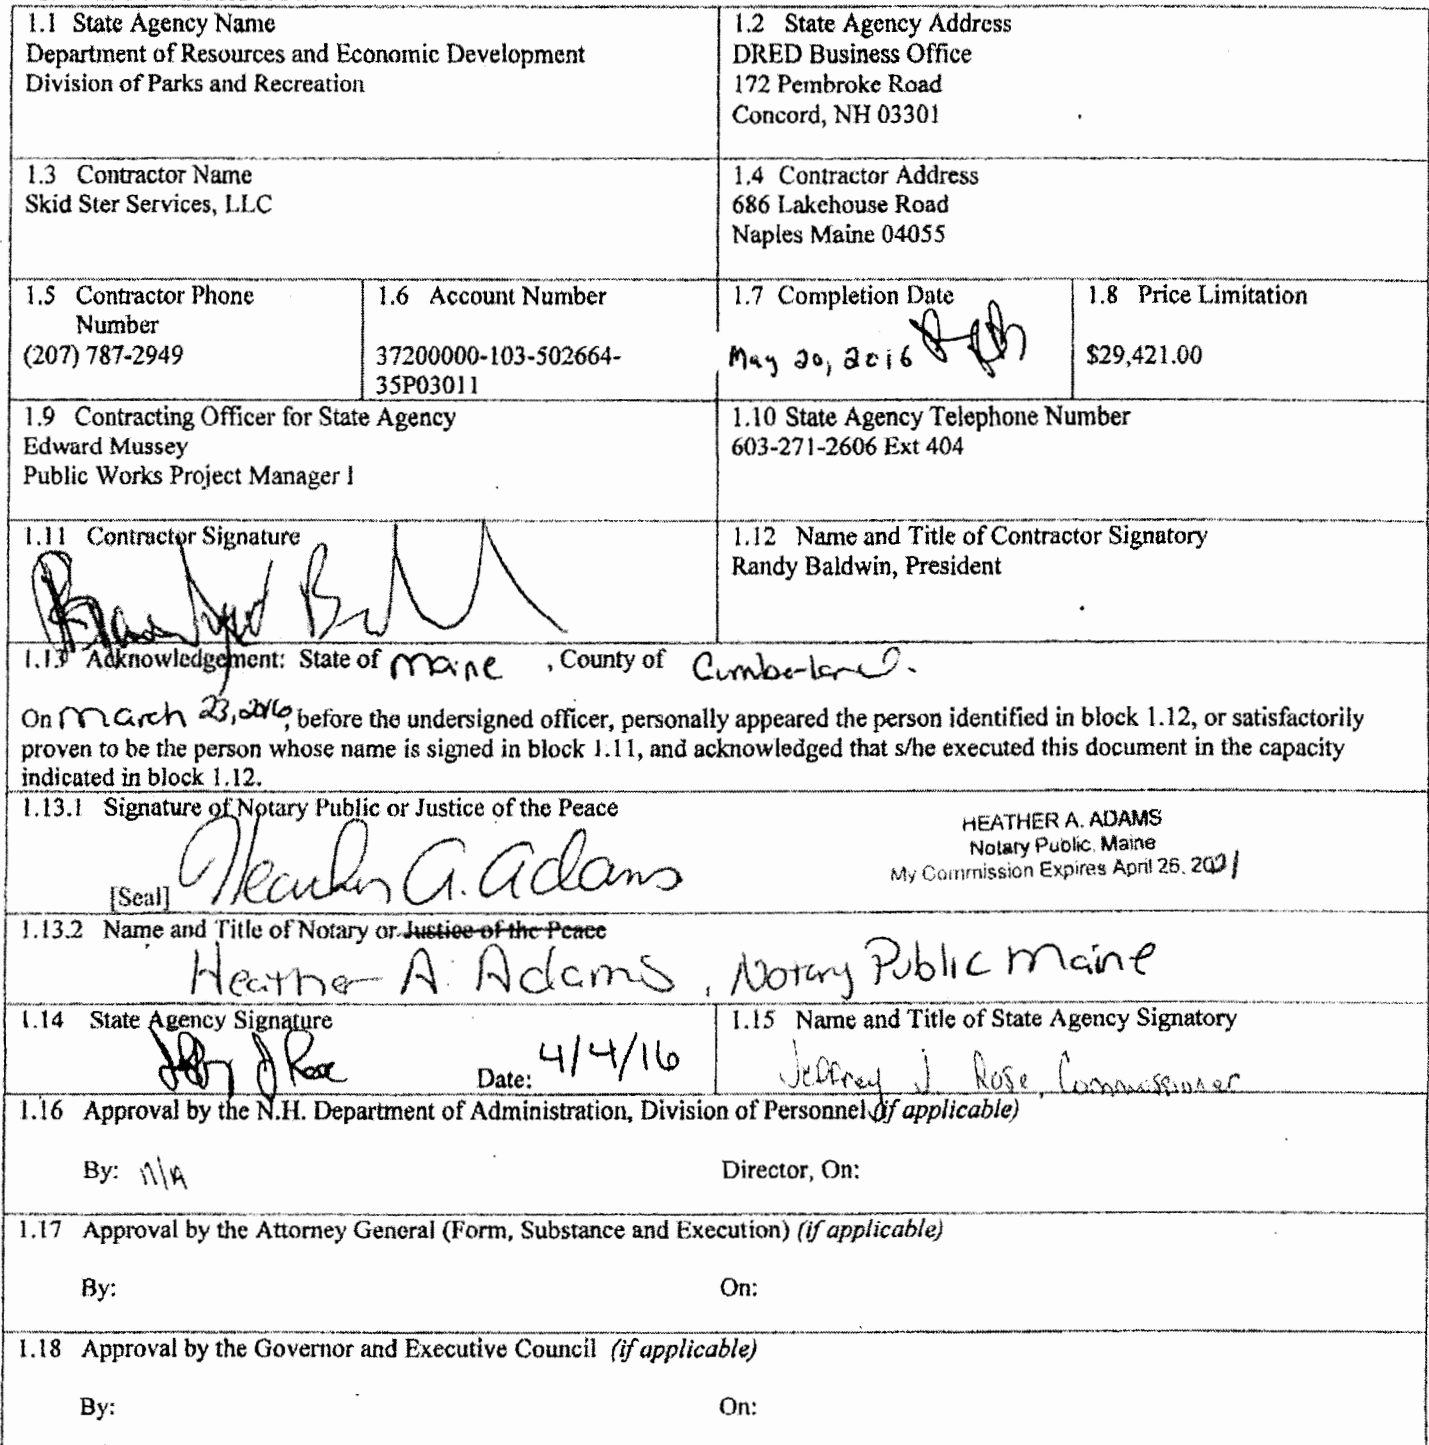 1.1 State Agency Name
Department of Resources and Economic Development
Division of Parks and Recreation
1.2 State Agency Address
DRED Business Office
172 Pembroke Road
Concord, NH 03301
1.3 Contractor Name
Skid Ster Services, LLC
1.4 Contractor Address
686 Lakehouse Road
Naples Maine 04055
1.5 Contractor Phone
Number
(207) 787-2949
1.6 Account Number
37200000-103-502664-
35P03011
1.7 Completion Date
May 20, 2016
1.8 Price Limitation
$29,421.00
1.9 Contracting Officer for State Agency
Edward Mussey
Public Works Project Manager I
1.10 State Agency Telephone Number
603-271-2606 Ext 404
1.11 Contractor Signature
1.12 Name and Title of Contractor Signatory
Randy Baldwin, President
1.13 Acknowledgement: State of Maine , County of Cumberland.
On March 23, 2016, before the undersigned officer, personally appeared the person identified in block 1.12, or satisfactorily
proven to be the person whose name is signed in block 1.11, and acknowledged that s/he executed this document in the capacity
indicated in block 1.12.
1.13.1 Signature of Notary Public or Justice of the Peace
HEATHER A. ADAMS
Notary Public, Maine
My Commission Expires April 25, 2021
[Seal] Heather A. Adams
1.13.2 Name and Title of Notary or Justice of the Peace
Heather A. Adams, Notary Public Maine
1.14 State Agency Signature
Jeffrey J Rose Date: 4/4/16
1.15 Name and Title of State Agency Signatory
Jeffrey J. Rose, Commissioner
1.16 Approval by the N.H. Department of Administration, Division of Personnel (if applicable)
By: n/A Director, On:
1.17 Approval by the Attorney General (Form, Substance and Execution) (if applicable)
By: On:
1.18 Approval by the Governor and Executive Council (if applicable)
By: On: